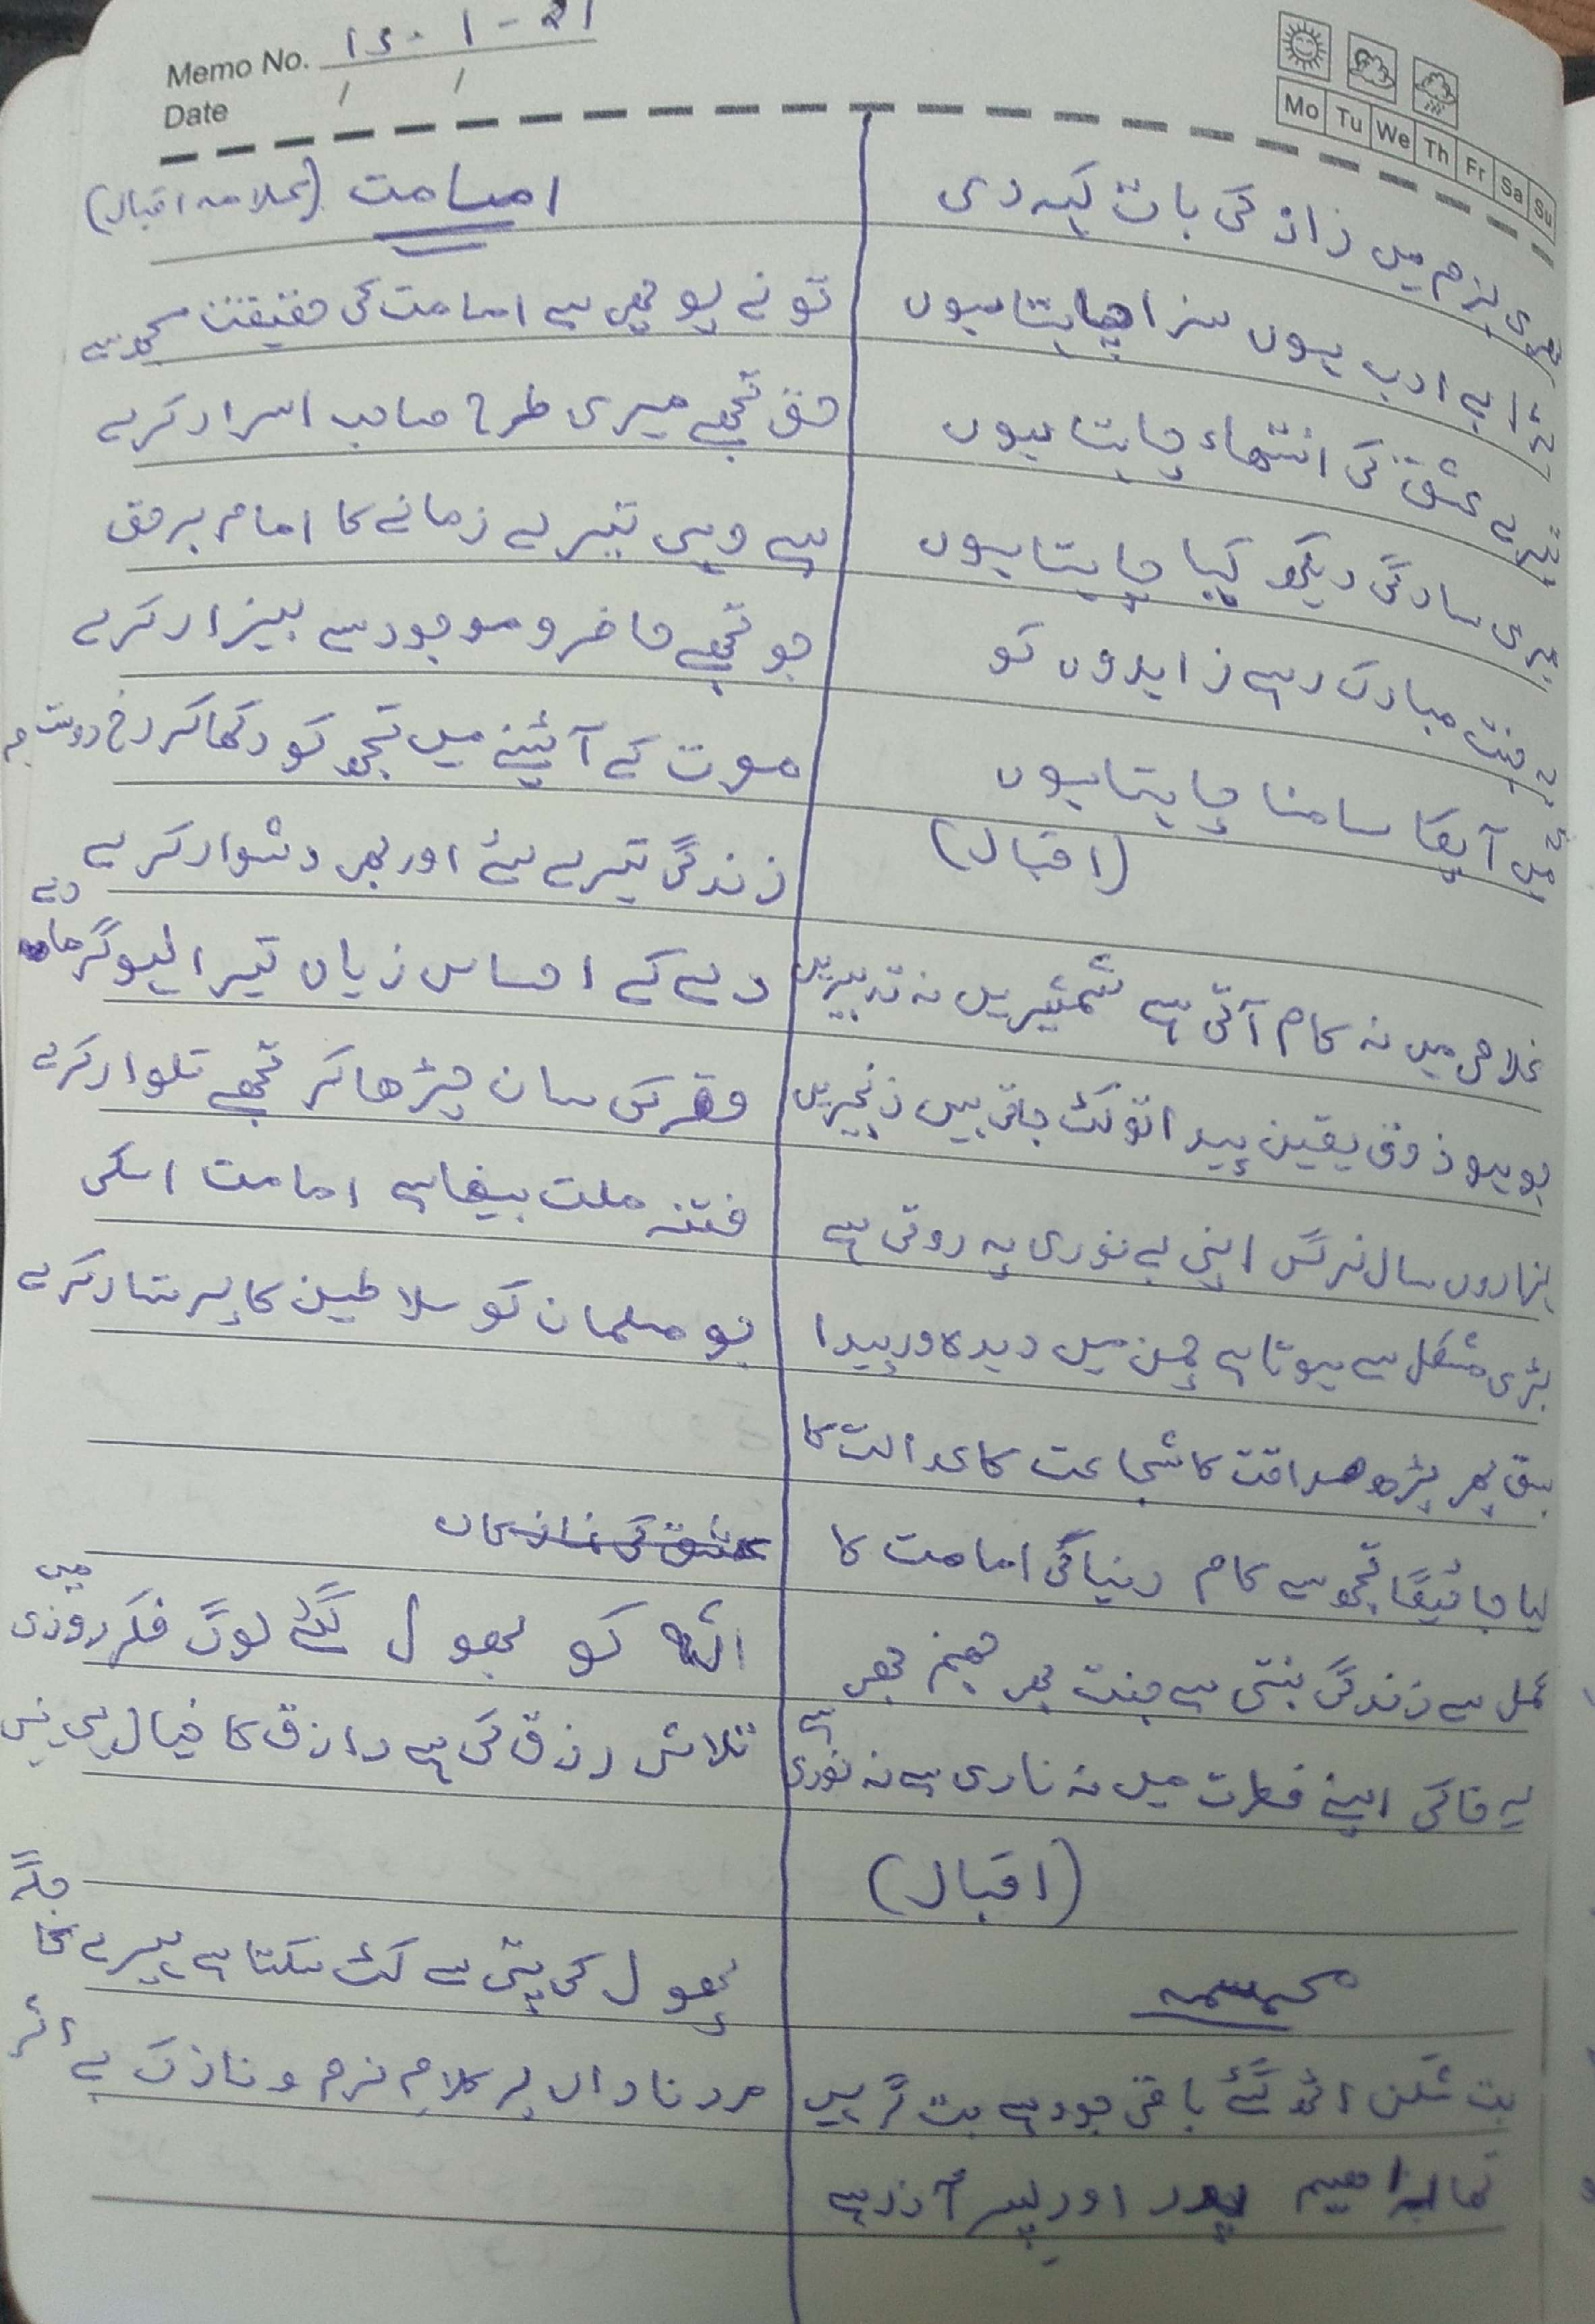 Memo No. 15-1-21
Date / /
Mo Tu We Th Fr Sa Su
بزم میں راز کی بات کہہ دی
بے ادب ہوں سزا چاہتا ہوں
عشق کی انتہاء چاہتا ہوں
سادگی دیکھ کیا چاہتا ہوں
جنت مبارک رہے زاہدوں کو
میں آپکا سامنا چاہتا ہوں
(اقبال)
غلامی میں نہ کام آتی ہے شمشیریں نہ تدبیریں
جو ہو ذوق یقین پیدا تو کٹ جاتی ہیں زنجیریں
ہزاروں سال نرگس اپنی بے نوری پہ روتی ہے
بڑی مشکل سے ہوتا ہے چمن میں دیدہ ور پیدا
سبق پھر پڑھ صداقت کا شجاعت کا عدالت کا
لیا جائیگا تجھ سے کام دنیا کی امامت کا
عمل سے زندگی بنتی ہے جنت بھر جہنم بھی
یہ خاکی اپنے فطرت میں نہ ناری ہے نہ نوری ہے
(اقبال)
بت شکن اٹھ گئے باقی جو رہے بت گر ہیں
تھا پدر اور پسر آزر ہے
امامت (علامہ اقبال)
تو نے پوچھی ہے امامت کی حقیقت مجھ سے
حق تجھے میری طرح صاحب اسرار کرے
ہے وہی تیرے زمانے کا امام برحق
جو تجھے حاضر و موجود سے بیزار کرے
موت کے آئینے میں تجھ کو دکھا کر رخ دوست
زندگی تیرے لئے اور بھی دشوار کرے
دے کے احساس زیاں تیرا لہو گرما دے
فقر کی سان چڑھا کر تجھے تلوار کرے
فتنہ ملت بیضا ہے امامت اسکی
جو مسلمان کو سلاطین کا پرستار کرے
عشق کی
اللہ کو بھول گئے لوگ فکر روزی میں
تلاش رزق کی ہے رازق کا خیال ہی نہیں
پھول کی پتی سے کٹ سکتا ہے ہیرے کا جگر
مرد ناداں پر کلام نرم و نازک بے اثر